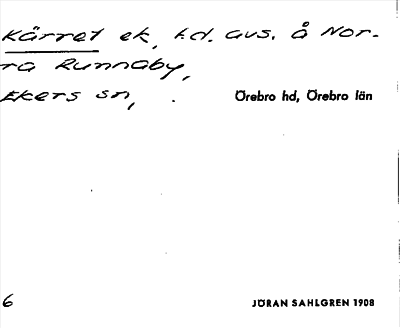 Kärret ek, f.d. avs. å Nor-
ra Runnaby,
Ekers sn, . Örebro hd, Örebro län
6 JÖRAN SAHLGREN 1908